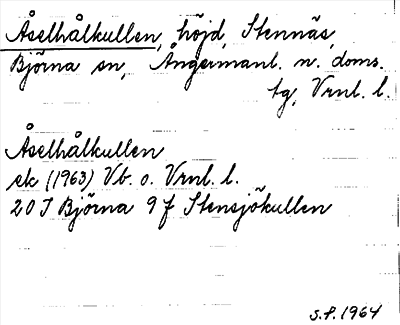 Åselhålkullen, höjd, Stennäs,
Björna sn, Ångermanl. n. doms.
tg, Vrnl. l.
Åselhålkullen
ek (1963) Vb. o. Vrnl. l.
20 J Björna 9 f Stensjökullen
S.F. 1964